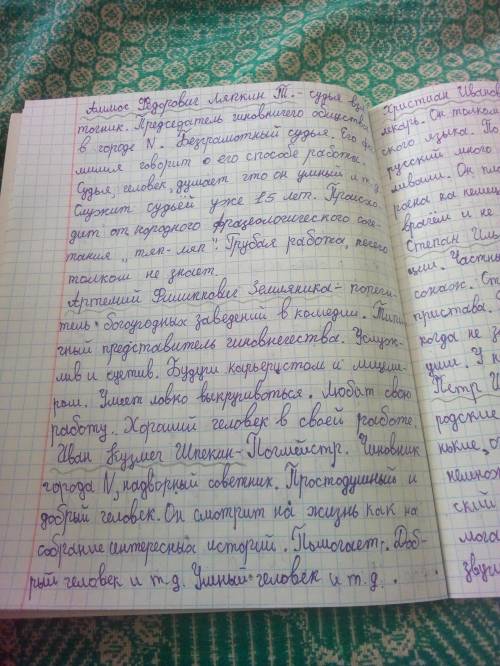 Аммос Фёдорович Ляпкин Т. - судья взя-
точник. Председатель чиновничего общества
в городе N. Безграмотный судья. Его фа-
милия говорит о его способе работы.
Судья, человек, думает что он умный и т.д.
Служит судьёй уже 15 лет. Происхо-
дит от народного фразеологического соче-
тания "тяп-ляп". Грубая работа, нечего
толком не знает.
Артемий Филиппович Земляника - попечи-
тель богоугодных заведений в комедии. Типи-
чный представитель чиновничества. Услуж-
лив и суетив. Будучи карьеристом и лицеме-
ром. Умеет ловко выкручиваться. Любит свою
работу. Хороший человек в своей работе.
Иван Кузмич Шпекин - Почмейстр. Чиновник
города N, надворный советник. Простодушный и
добрый человек. Он смотрит на жизнь как на
собрание интересных историй. Помогает. Доб-
рый человек и т.д. Умный человек и т.д.
Христиан Иванов
лекарь. Он толком
ского языка. По
русский много
мивали. Он пло
врачём и не
Степан Иль
ции. Частны
пристава.
когда не з
ции. У к
Петр И
родские
нькие, о
немнож
ский
мога
звуч